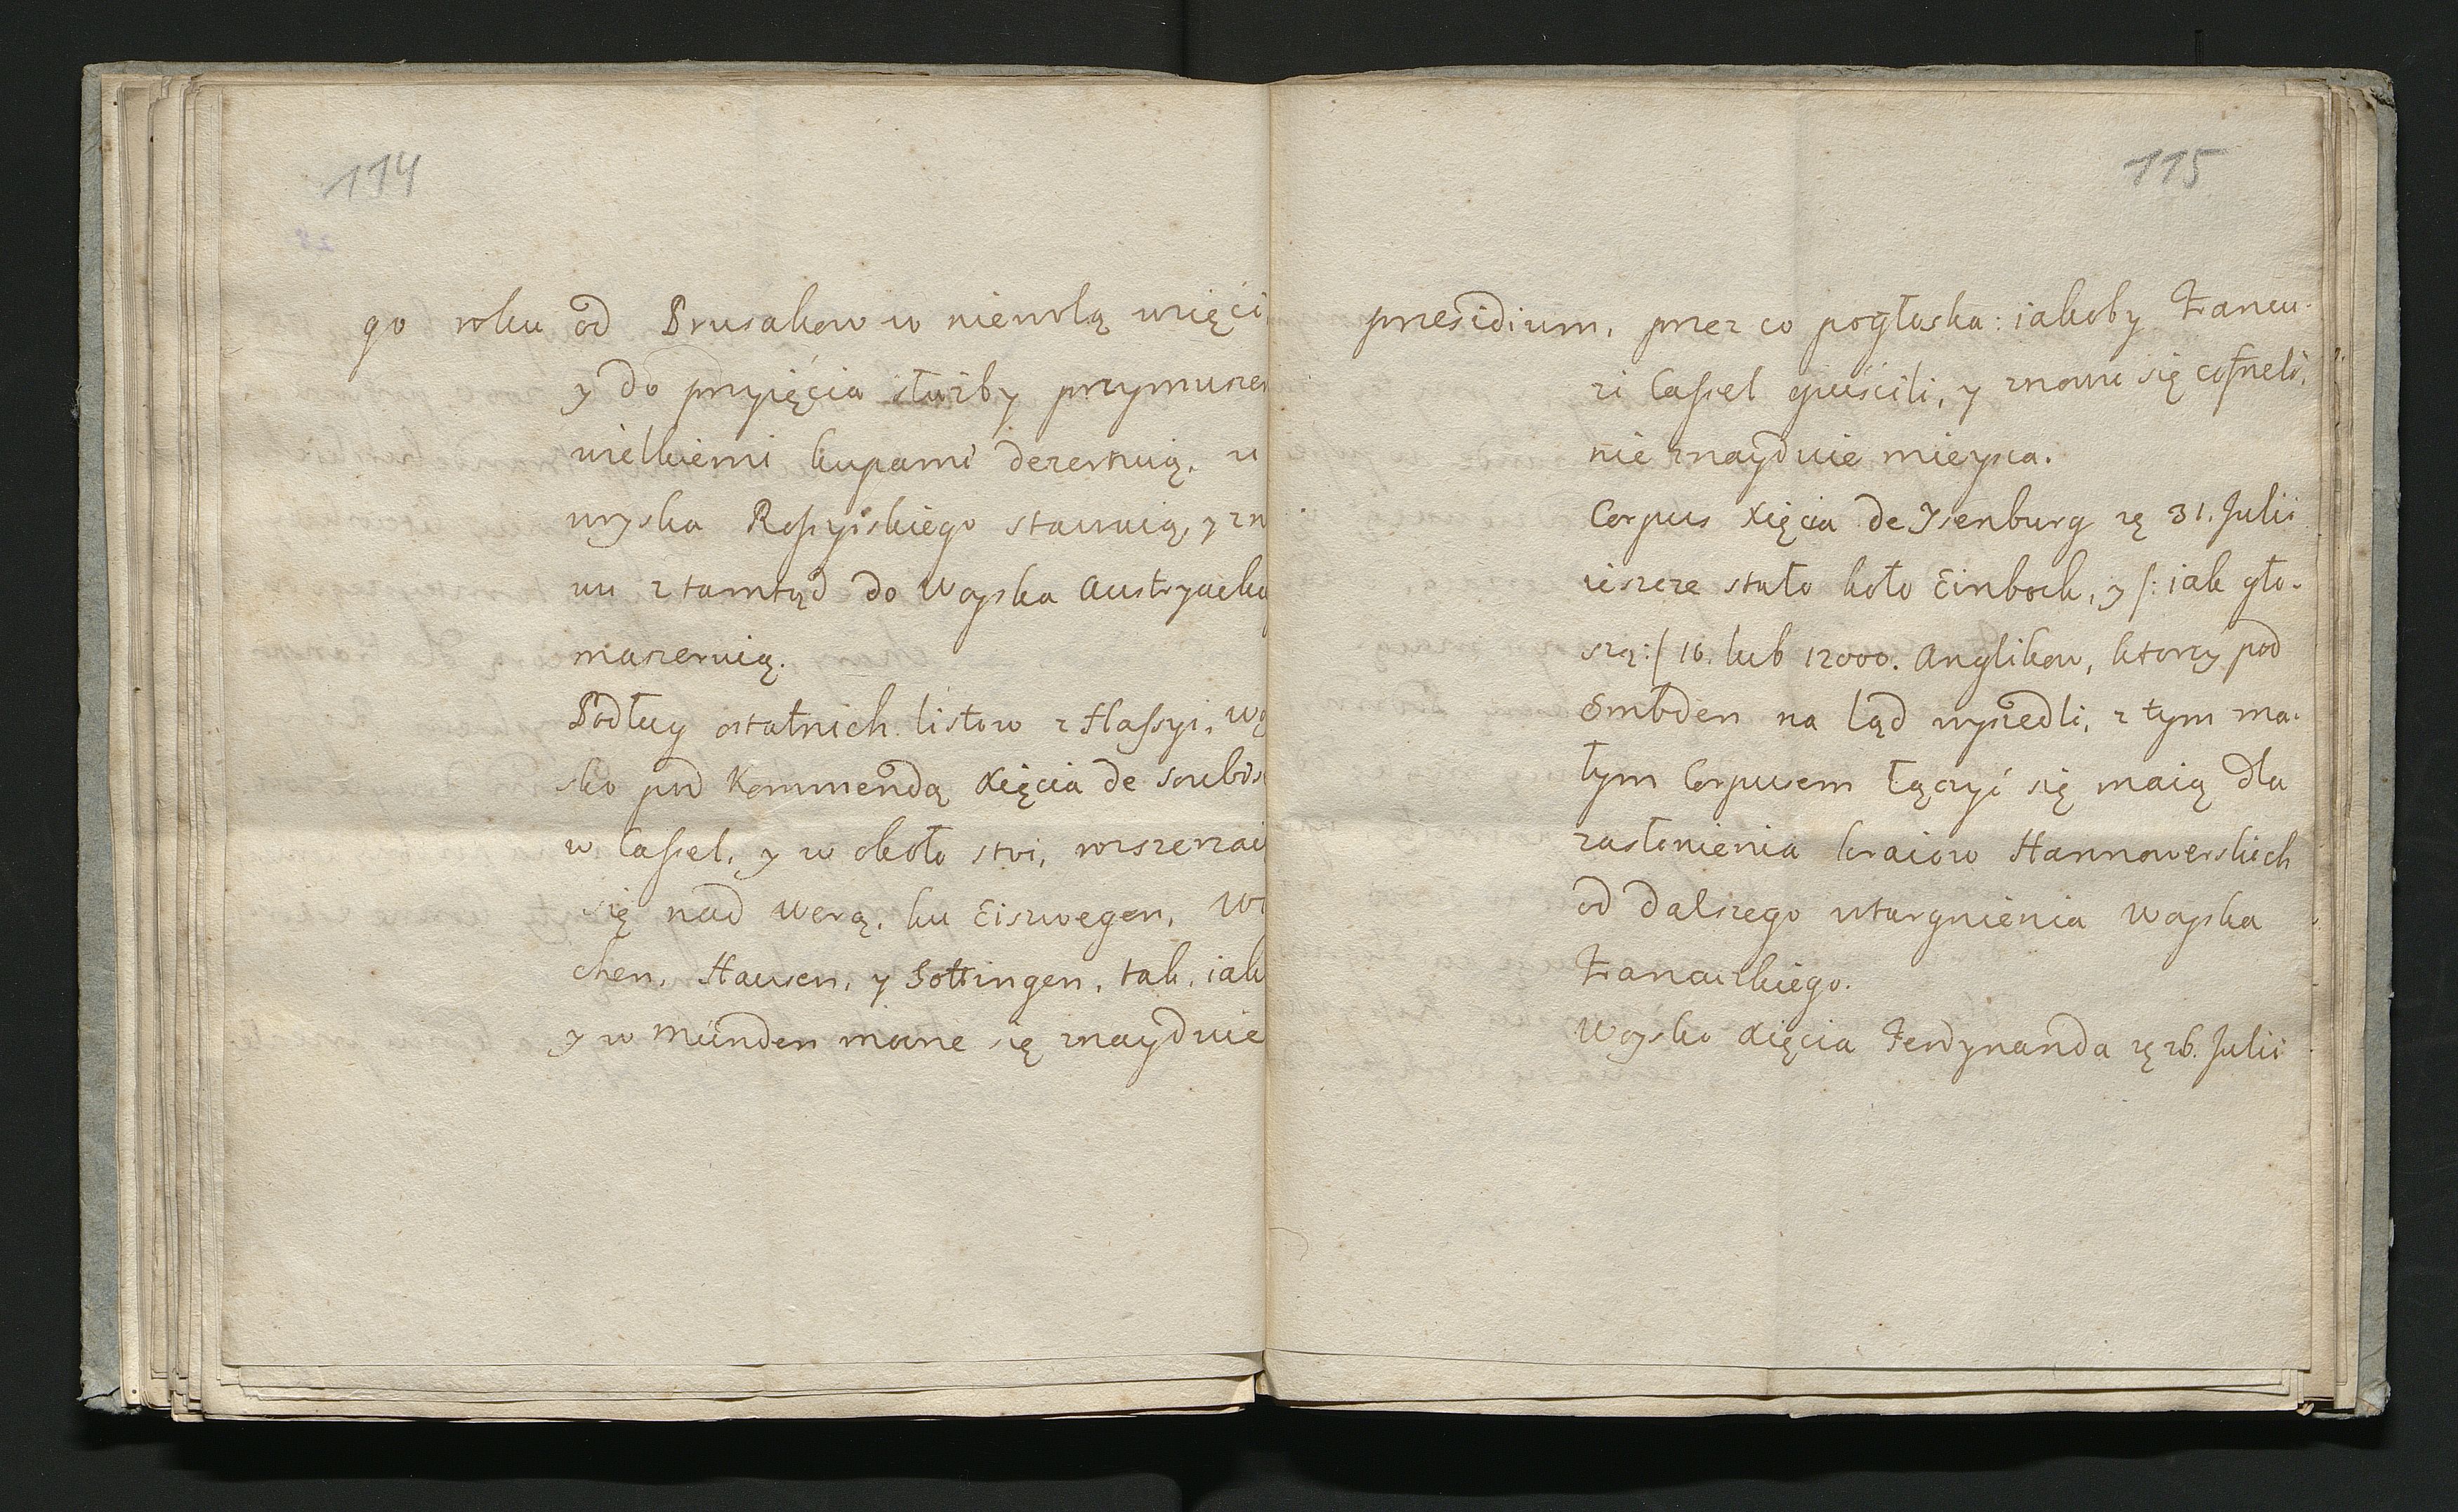 114
go roku od Prusakow w niewolą wzięci
y do przyięcia służby przymusze
wielkiemi kupami dezertuią, u
woyska Rossyiskiego stawaią, y zn
wu ztamtąd do Woyska Austryacko
maszeruią.
Podług ostatnich listow z Hassyi, wo
sko pod Kommendą Xięcia de Soubis
w Cassel, y w około stoi, rozszerzai
się nad Werą, ku Eiszwegen, Wi
chen, Hausen, y Gottingen, tak, iak
y w Münden mocne się znayduie
115
presidium, przez co pogłoska: iakoby Francu-
zi Cassel opuścili, y znowu się cofneli,
nie znayduie mieysca.
Corpus Xięcia de Isenburg zę 31. Julii
ieszcze stało koło Einbock, y /: iak gło-
szą :/ 10. lub 12000. Anglikow, ktorzy pod
Embden na ląd wyszedli, z tym ma-
łym Corpusem łączyć się maią dla
zasłonienia kraiow Hannowerskich
od dalszego wtargnienia woyska
Francuzkiego.
Woysko Xięcia Ferdynanda zę 26. Julii